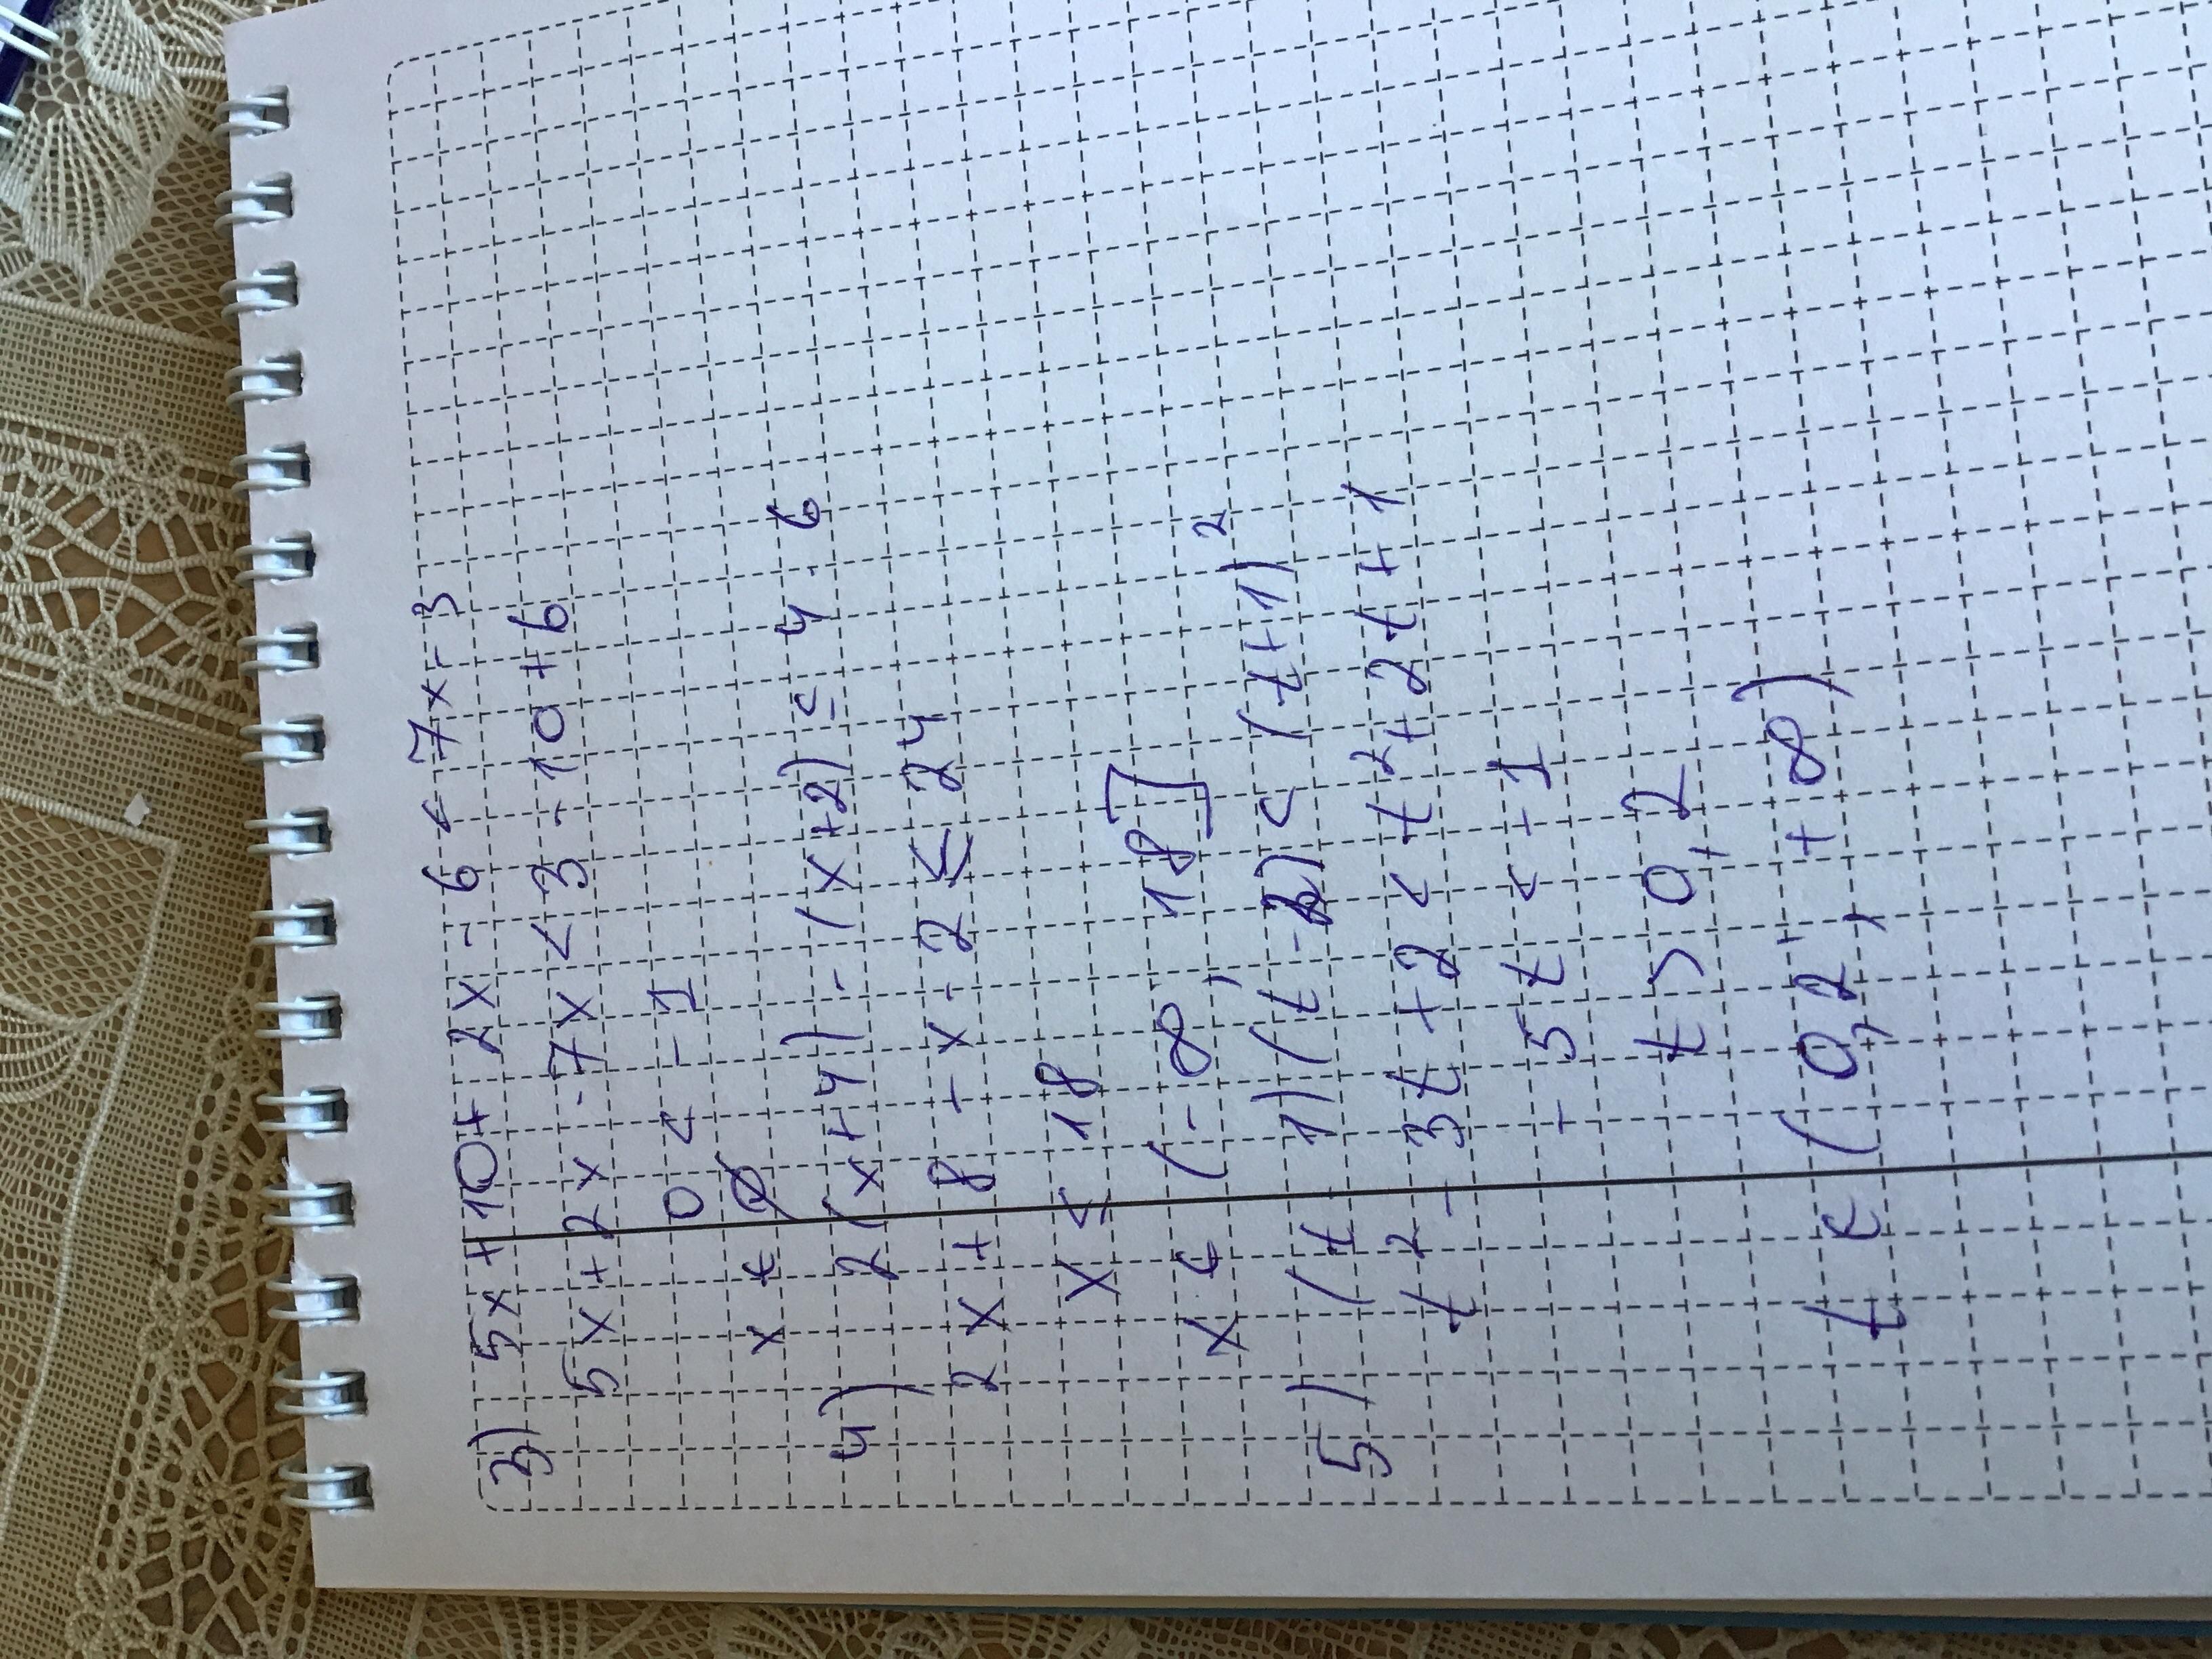 3) 5x+10+2x-6<7x-3
5x+2x-7x<3-10+6
0<-1
x∈∅
4) 2(x+4)-(x+2)≤4·6
2x+8-x-2≤24
x≤18
x∈(-∞; 18]
5) (t-1)(t-2)<(t+1)²
t²-3t+2<t²+2t+1
-5t<-1
t>0,2
t∈(0,2; +∞)